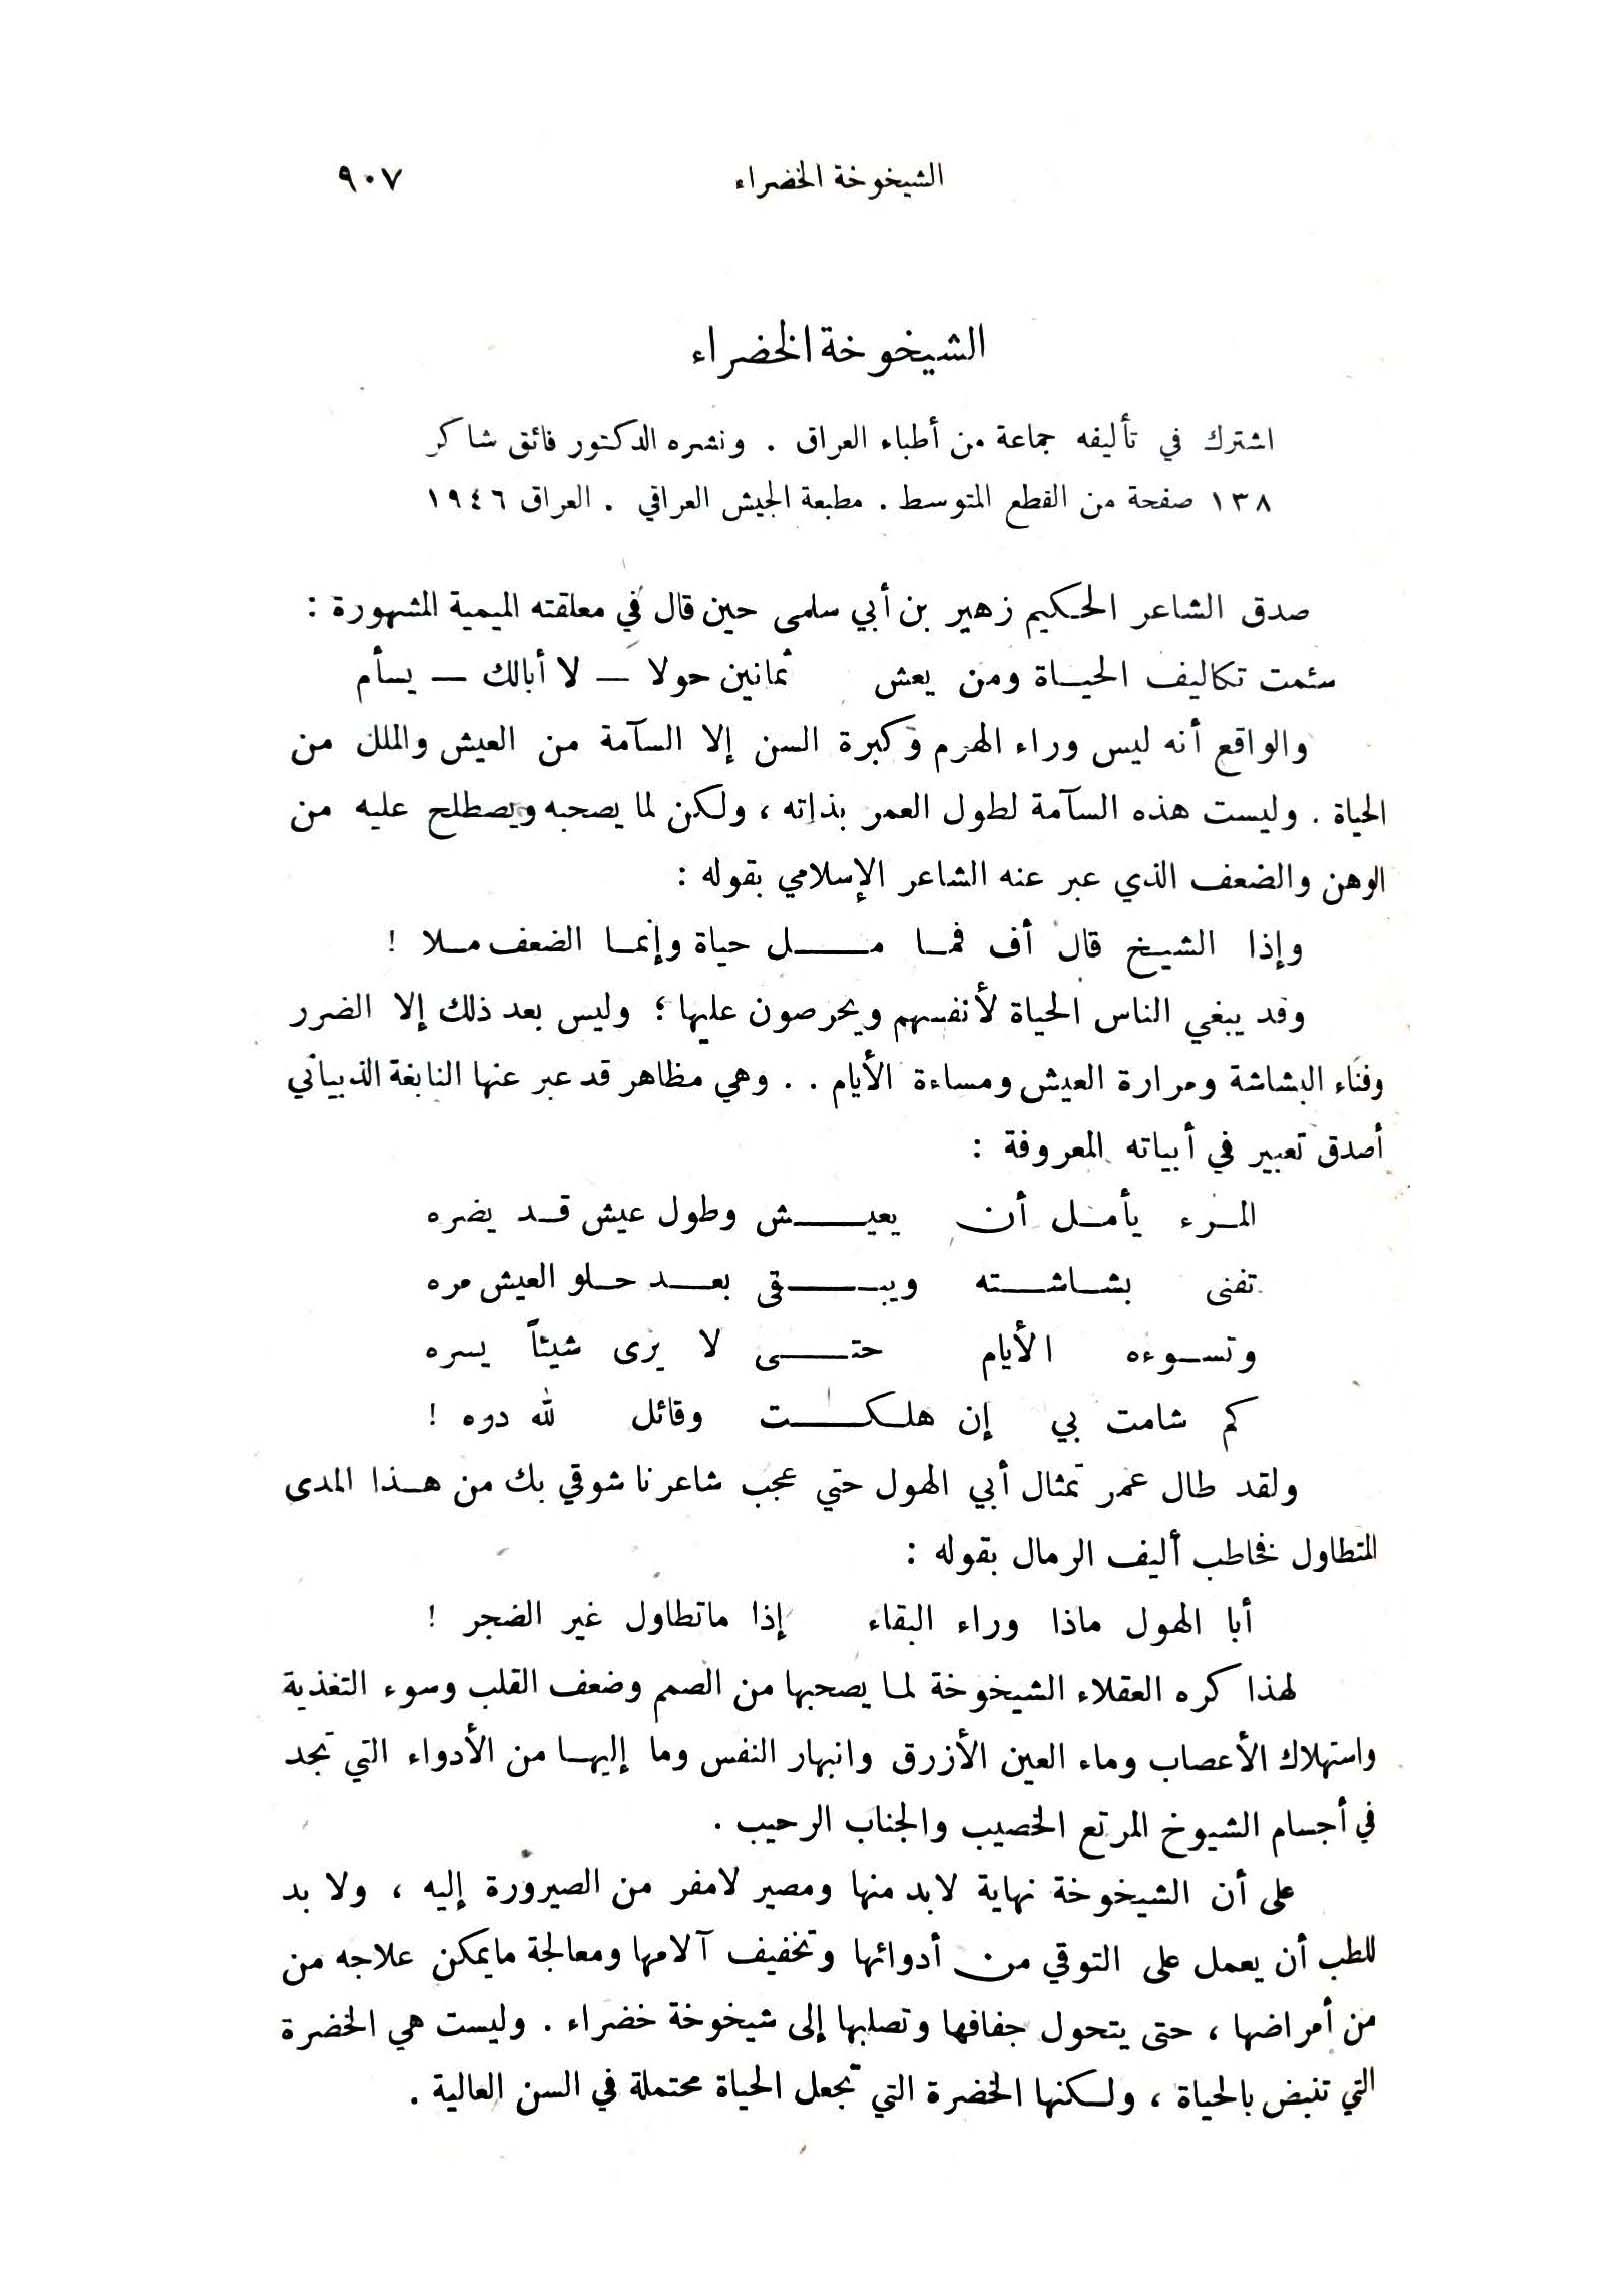 الشيخوخة الخضراء ٩٠٧
الشيخوخة الخضراء
اشترك في تأليفه جماعة من أطباء العراق . ونشره الدكتور فائق شاكر
١٣٨ صفحة من القطع المتوسط . مطبعة الجيش العراقي . العراق ١٩٤٦
صدق الشاعر الحكيم زهير بن أبي سلمى حين قال في معلقته الميمية المشهورة :
سئمت تكاليف الحياة ومن يعش ثمانين حولا – لا أبالك – يسأم
والواقع أنه ليس وراء الهرم وكبرة السن إلا السآمة من العيش والملل من
الحياة . وليست هذه السآمة لطول العمر بذاته ، ولكن لما يصحبه ويصطلح عليه من
الوهن والضعف الذي عبر عنه الشاعر الإسلامي بقوله :
وإذا الشيخ قال أف فما مل حياة وإنما الضعف ملا !
وقد يبغي الناس الحياة لأنفسهم ويحرصون عليها ؛ وليس بعد ذلك إلا الضرر
وفناء البشاشة ومرارة العيش ومساءة الأيام . . وهي مظاهر قد عبر عنها النابغة الذبياني
أصدق تعبير في أبياته المعروفة :
المرء يأمل أن يعيش وطول عيش قد يضره
تفنى بشاشته ويبقى بعد حلو العيش مره
وتسوءه الأيام حتى لا يرى شيئاً يسره
كم شامت بي إن هلكت وقائل لله دره !
ولقد طال عمر تمثال أبي الهول حتي عجب شاعرنا شوقي بك من هذا المدى
المتطاول فخاطب أليف الرمال بقوله :
أبا الهول ماذا وراء البقاء إذا ماتطاول غير الضجر !
لهذا كره العقلاء الشيخوخة لما يصحبها من الصمم وضعف القلب وسوء التغذية
واستهلاك الأعصاب وماء العين الأزرق وانبهار النفس وما إليها من الأدواء التي تجد
في أجسام الشيوخ المرتع الخصيب والجناب الرحيب .
على أن الشيخوخة نهاية لابد منها ومصير لامفر من الصيرورة إليه ، ولا بد
للطب أن يعمل على التوقي من أدوائها وتخفيف آلامها ومعالجة مايمكن علاجه من
من أمراضها ، حتى يتحول جفافها وتصلبها إلى شيخوخة خضراء . وليست هي الخضرة
التي تنبض بالحياة ، ولكنها الخضرة التي تجعل الحياة محتملة في السن العالية .